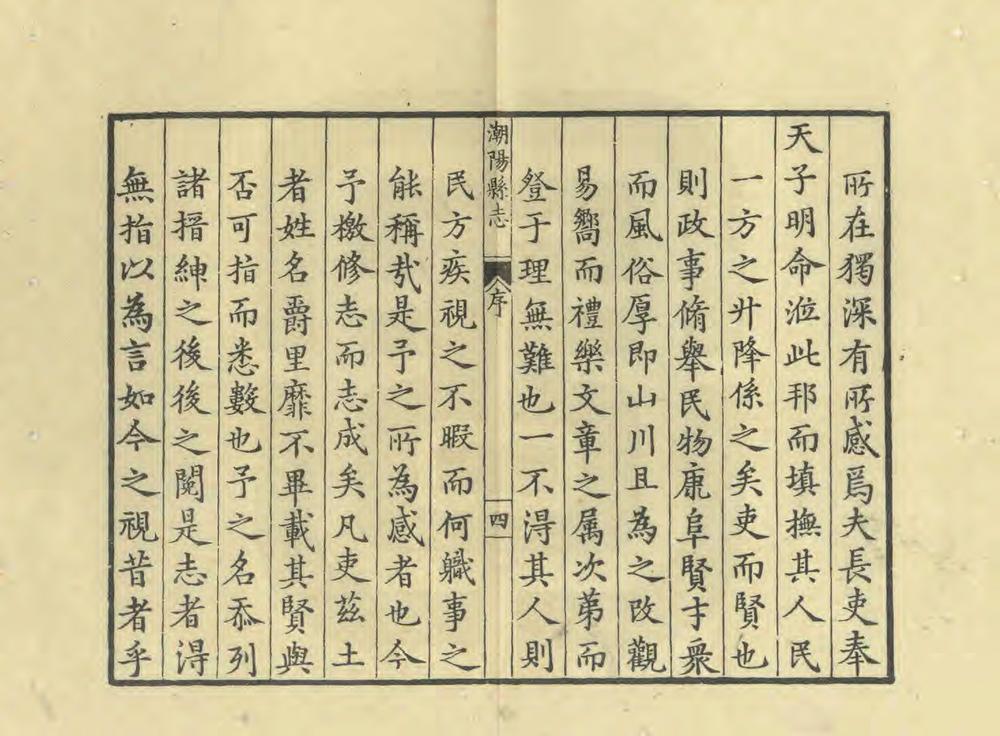 所在獨深有所感焉夫長吏奉
天子明命涖此邦而填撫其人民
一方之升降係之矣吏而賢也
則政事脩舉民物康阜賢才衆
而風俗厚即山川且為之改觀
易嚮而禮樂文章之属次第而
登于理無難也一不得其人則
潮陽縣志
序
四
民方疾視之不暇而何職事之
能稱哉是予之所為感者也今
予檄修志而志成矣凡吏茲土
者姓名爵里靡不畢載其賢與
否可指而悉數也予之名忝列
諸搢紳之後後之閱是志者得
無指以為言如今之視昔者乎